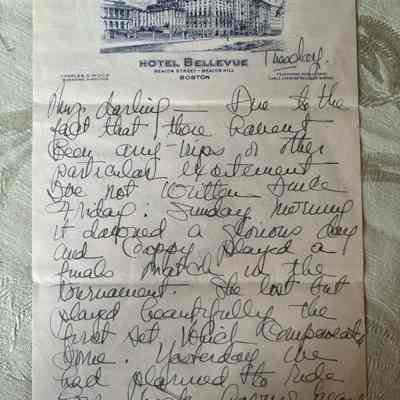 HOTEL BELLEVUE
BEACON STREET - BEACON HILL
BOSTON
Tuesday.
darling — Due to the
fact that there haven't
been any trips or other
particular excitement
I've not written since
Friday. Sunday morning
it dawned a glorious day
and played a
finals match in the
tournament. She lost but
played beautifully the
first set which compensated
some. Yesterday we
had planned to ride